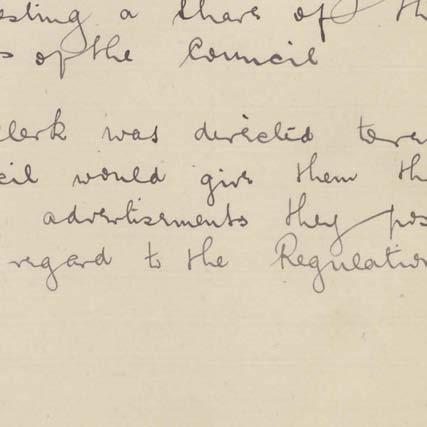 esting a share of th
s of the Council
lerk was directed to re
cil would give them th
advertisements they pos
regard to the Regulation